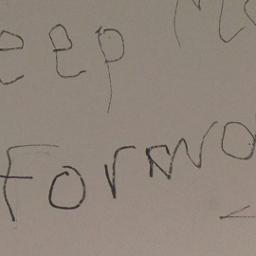 eep M
Forwa